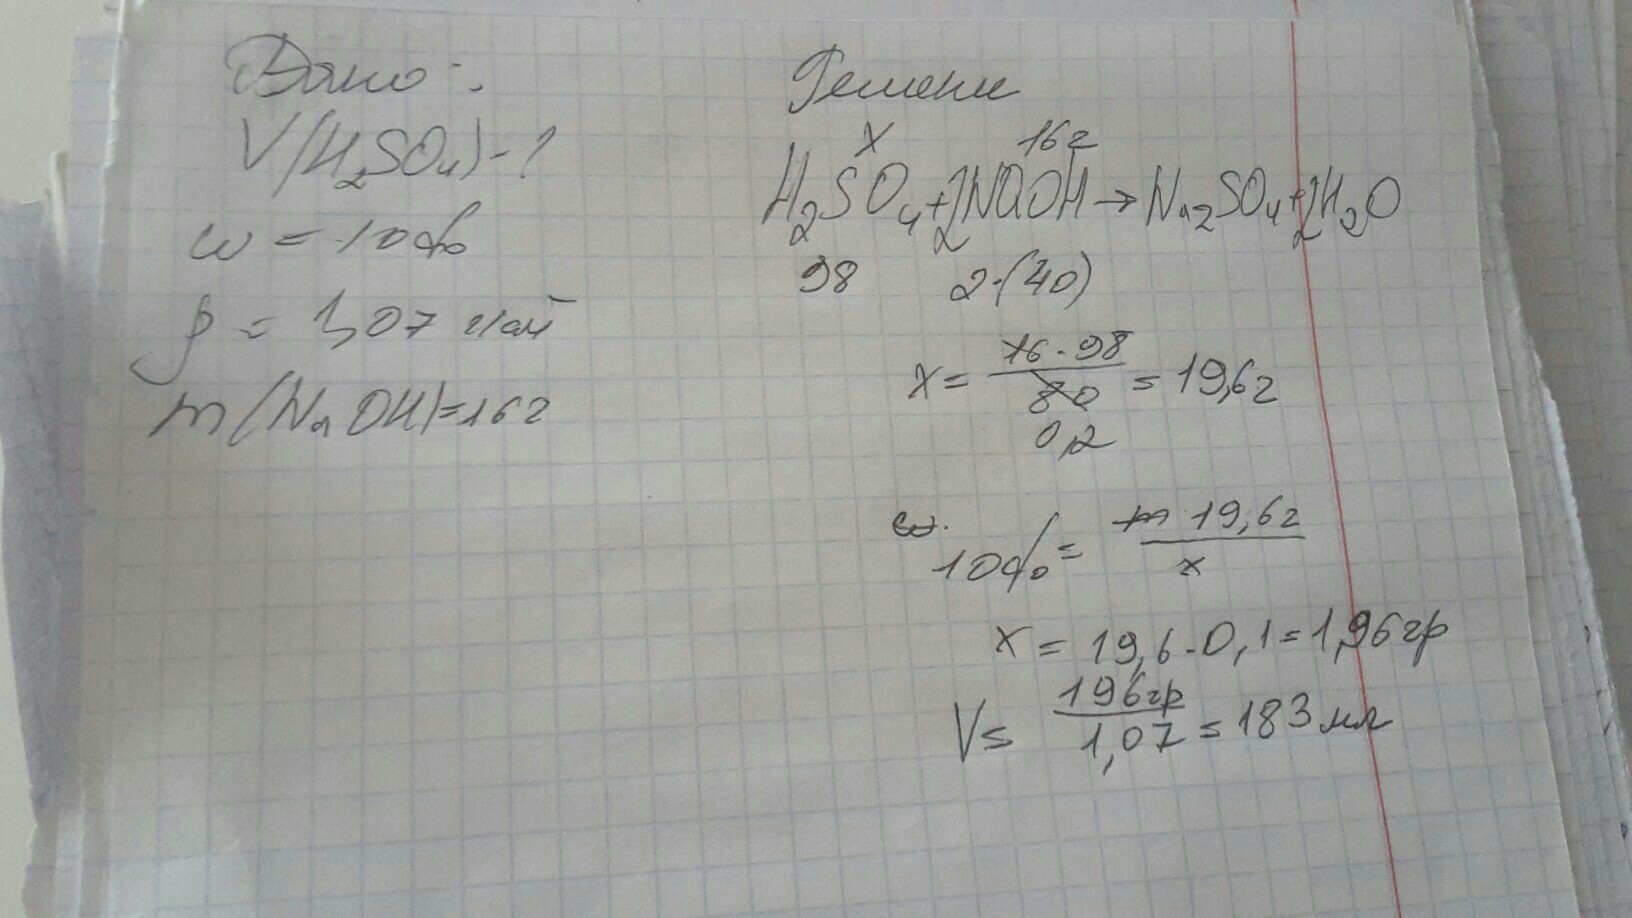 Дано:
V(H2SO4)-?
ω = 10%
ρ = 1,07 г/мл
m(NaOH)=16г
Решение
x 16г
H2SO4+2NaOH→Na2SO4+2H2O
98 2·(40)
x = 16·98 / 80 = 19,6г
0,2
ω.
10% = m 19,6г / x
x = 19,6·0,1=1,96гр
V= 196гр / 1,07 = 183мл